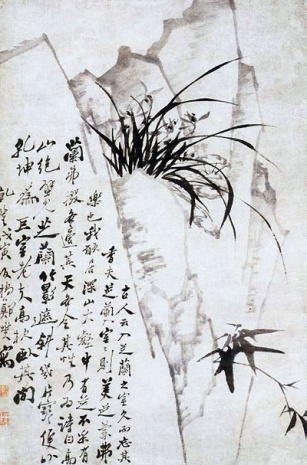 古人云入芝蘭之室久而忘其
香夫芝蘭入室室則美矣芝蘭弗
樂也我願居深山大壑中有芝不采有
蘭弗掇各適其天各全其性乃為詩曰高
山絕壁見芝蘭竹影遮斜幾片寒便以
乾坤為巨室老夫高枕臥其間
乾隆戊寅板橋鄭燮寫